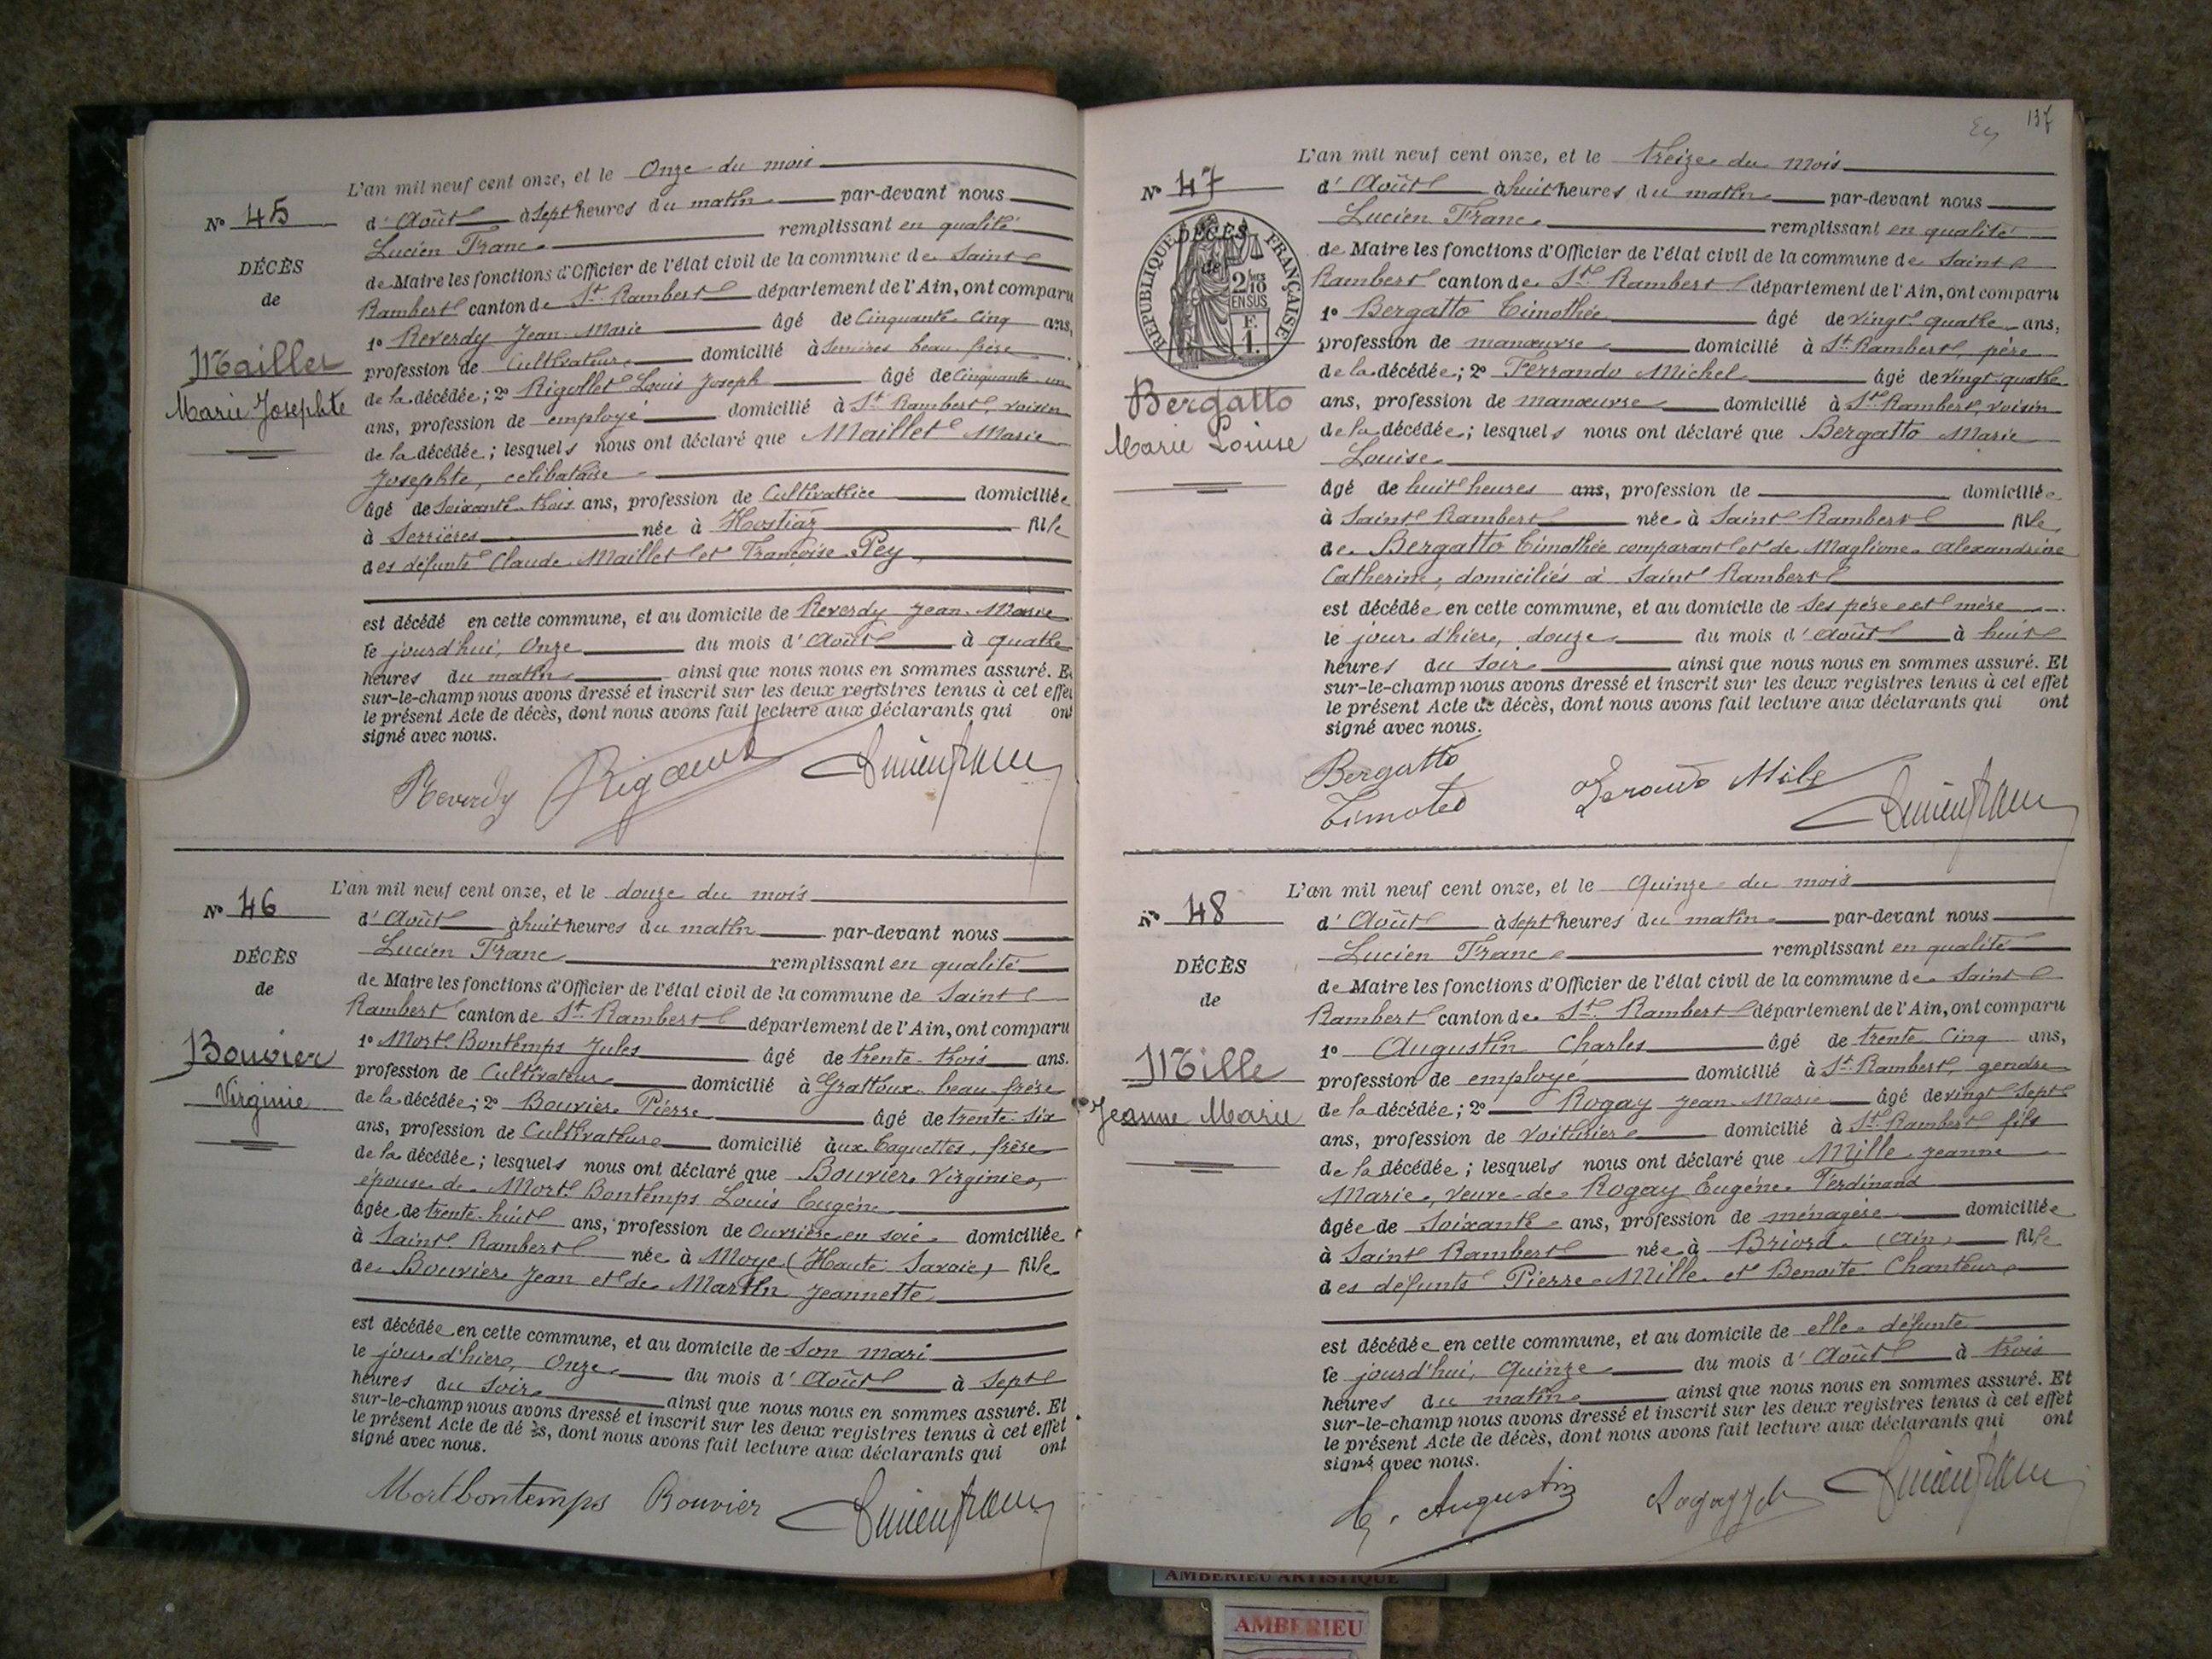 L'an mil neuf cent onze, et le Onze du mois
Nº 45
d' Août à Sept heures du matin par-devant nous
Lucien Franc remplissant en qualité
DÉCÈS
de
Maillet
Marie Josephte
de Maire les fonctions d'Officier de l'état civil de la commune de Saint
Rambert canton de St Rambert département de l'Ain, ont comparu
1º Reverdy Jean-Marie âgé de Cinquante Cinq ans,
profession de Cultivateur domicilié à Serrières beau frère
de la décédée; 2º Rigollet Louis Joseph âgé de Cinquante un
ans, profession de employé domicilié à St Rambert, voisin
de la décédée; lesquels nous ont déclaré que Maillet Marie
Josephte, célibataire
âgé de Soixante trois ans, profession de Cultivatrice domiciliée
à Serrières née à Hostiaz fille
des défunts Claude Maillet et Françoise Pey
est décédé en cette commune, et au domicile de Reverdy Jean-Marie
le jourd'hui, Onze du mois d'Août à quatre
heures du matin ainsi que nous nous en sommes assuré. Et
sur-le-champ nous avons dressé et inscrit sur les deux registres tenus à cet effet
le présent Acte de décès, dont nous avons fait lecture aux déclarants qui ont
signé avec nous.
Reverdy
L'an mil neuf cent onze, et le douze du mois
Nº 46
d' Août à huit heures du matin par-devant nous
Lucien Franc remplissant en qualité
DÉCÈS
de
Bouvier
Virginie
de Maire les fonctions d'Officier de l'état civil de la commune de Saint
Rambert canton de St Rambert département de l'Ain, ont comparu
1º Mort Bontemps Jules âgé de trente-trois ans.
profession de Cultivateur domicilié à Grattoux beau frère
de la décédée; 2º Bouvier Pierre âgé de trente-six
ans, profession de Cultivateur domicilié aux Caquettes, frère
de la décédée; lesquels nous ont déclaré que Bouvier Virginie,
épouse de Mort Bontemps Louis Eugène
âgée de trente-huit ans, profession de Ouvrière en soie domiciliée
à Saint Rambert née à Moye (Haute Savoie) fille
de Bouvier Jean et de Martin Jeannette
est décédée en cette commune, et au domicile de Son mari
le jour d'hier, Onze du mois d'Août à Sept
heures du Soir ainsi que nous nous en sommes assuré. Et
sur-le-champ nous avons dressé et inscrit sur les deux registres tenus à cet effet
le présent Acte de décès, dont nous avons fait lecture aux déclarants qui ont
signé avec nous.
Mortbontemps Bouvier
137
L'an mil neuf cent onze, et le treize du mois
Nº 47
d' Août à huit heures du matin par-devant nous
Lucien Franc remplissant en qualité
DÉCÈS
de
REPUBLIQUE FRANÇAISE
2/10 EN SUS
F. 1.
Bergatto
Marie Louise
de Maire les fonctions d'Officier de l'état civil de la commune de Saint
Rambert canton de St Rambert département de l'Ain, ont comparu
1º Bergatto Timothée âgé de vingt quatre ans,
profession de manœuvre domicilié à St Rambert, père
de la décédée; 2º Ferrando Michel âgé de vingt-quatre
ans, profession de manœuvre domicilié à St Rambert, voisin
de la décédée; lesquels nous ont déclaré que Bergatto Marie
Louise
âgé de huit heures ans, profession de domiciliée
à Saint Rambert née à Saint Rambert fille
de Bergatto Timothée comparant et de Maglione Alexandrine
Catherine, domiciliés à Saint Rambert
est décédée en cette commune, et au domicile de Ses père et mère
le jour d'hier, douze du mois d'Août à huit
heures du Soir ainsi que nous nous en sommes assuré. Et
sur-le-champ nous avons dressé et inscrit sur les deux registres tenus à cet effet
le présent Acte de décès, dont nous avons fait lecture aux déclarants qui ont
signé avec nous.
Bergatto
Timoteo
L'an mil neuf cent onze, et le Quinze du mois
Nº 48
d' Août à Sept heures du matin par-devant nous
Lucien Franc remplissant en qualité
DÉCÈS
de
Mille
Jeanne Marie
de Maire les fonctions d'Officier de l'état civil de la commune de Saint
Rambert canton de St Rambert département de l'Ain, ont comparu
1º Augustin Charles âgé de trente Cinq ans,
profession de employé domicilié à St Rambert, gendre
de la décédée; 2º Rogay Jean-Marie âgé de vingt Sept
ans, profession de Voiturier domicilié à St Rambert fils
de la décédée; lesquels nous ont déclaré que Mille Jeanne
Marie, veuve de Rogay Eugène Ferdinand
âgée de Soixante ans, profession de ménagère domiciliée
à Saint Rambert née à Briord (Ain) fille
des défunts Pierre Mille et Benoite Chanteur
est décédée en cette commune, et au domicile de elle défunte
le jourd'hui, Quinze du mois d'Août à trois
heures du matin ainsi que nous nous en sommes assuré. Et
sur-le-champ nous avons dressé et inscrit sur les deux registres tenus à cet effet
le présent Acte de décès, dont nous avons fait lecture aux déclarants qui ont
signé avec nous.
C. Augustin
AMBERIEU ARTISTIQUE
AMBERIEU